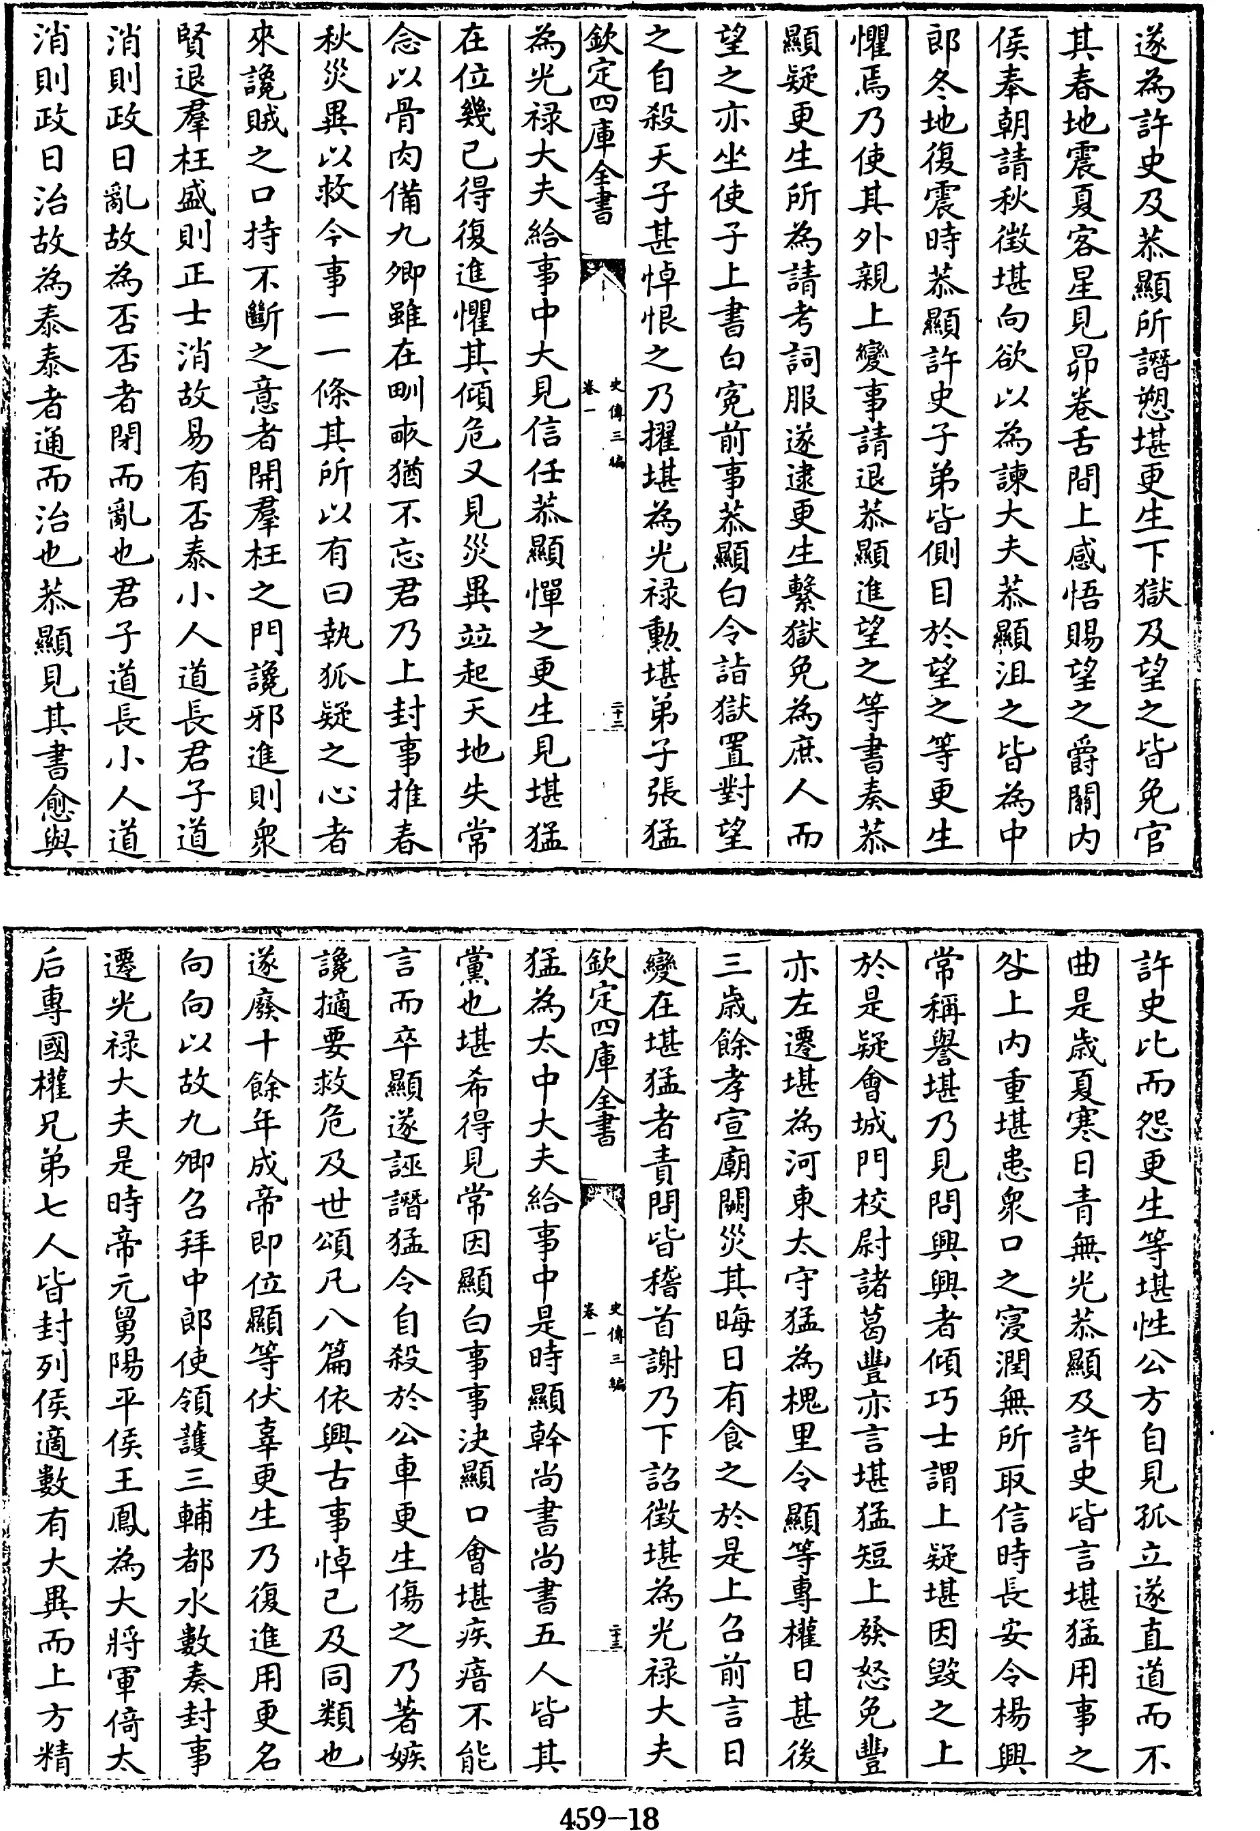 遂為許史及恭顯所譖愬堪更生下獄及望之皆免官
其春地震夏客星見昴卷舌間上感悟賜望之爵關內
侯奉朝請秋徵堪向欲以為諫大夫恭顯沮之皆為中
郎冬地復震時恭顯許史子弟皆側目於望之等更生
懼焉乃使其外親上變事請退恭顯進望之等書奏恭
顯疑更生所為請考詞服遂逮更生繫獄免為庶人而
望之亦坐使子上書白寃前事恭顯白令詣獄置對望
之自殺天子甚悼恨之乃擢堪為光禄勲堪弟子張猛
欽定四庫全書
史傳三編
卷一
二十二
為光禄大夫給事中大見信任恭顯憚之更生見堪猛
在位幾己得復進懼其傾危又見災異竝起天地失常
念以骨肉備九卿雖在甽畝猶不忘君乃上封事推春
秋災異以救今事一一條其所以有曰執狐疑之心者
來讒賊之口持不斷之意者開羣枉之門讒邪進則衆
賢退羣枉盛則正士消故易有否泰小人道長君子道
消則政日亂故為否否者閉而亂也君子道長小人道
消則政日治故為泰泰者通而治也恭顯見其書愈與
許史比而怨更生等堪性公方自見孤立遂直道而不
曲是歲夏寒日青無光恭顯及許史皆言堪猛用事之
咎上內重堪患衆口之寖潤無所取信時長安令楊興
常稱譽堪乃見問興興者傾巧士謂上疑堪因毀之上
於是疑會城門校尉諸葛豐亦言堪猛短上發怒免豐
亦左遷堪為河東太守猛為槐里令顯等專權日甚後
三歲餘孝宣廟闕災其晦日有食之於是上召前言日
變在堪猛者責問皆稽首謝乃下詔徵堪為光禄大夫
欽定四庫全書
史傳三編
卷一
二十三
猛為太中大夫給事中是時顯幹尚書尚書五人皆其
黨也堪希得見常因顯白事事決顯口會堪疾瘖不能
言而卒顯遂誣譖猛令自殺於公車更生傷之乃著嫉
讒擿要救危及世頌凡八篇依興古事悼己及同類也
遂廢十餘年成帝即位顯等伏辜更生乃復進用更名
向向以故九卿召拜中郎使領護三輔都水數奏封事
遷光禄大夫是時帝元舅陽平侯王鳳為大將軍倚太
后專國權兄弟七人皆封列侯適數有大異而上方精
459-18